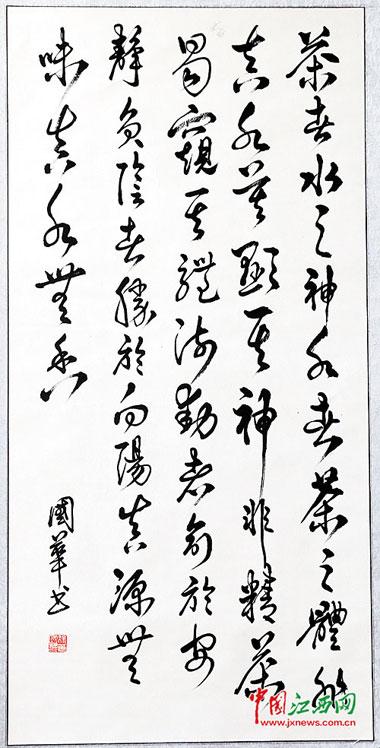 茶者水之神水者茶之體非
真水莫顯其神非精茶
曷窺其體流動者愈於安
靜負陰者勝於向陽真源無
味真水無香
國華書
中国江西网
www.jxnews.com.cn